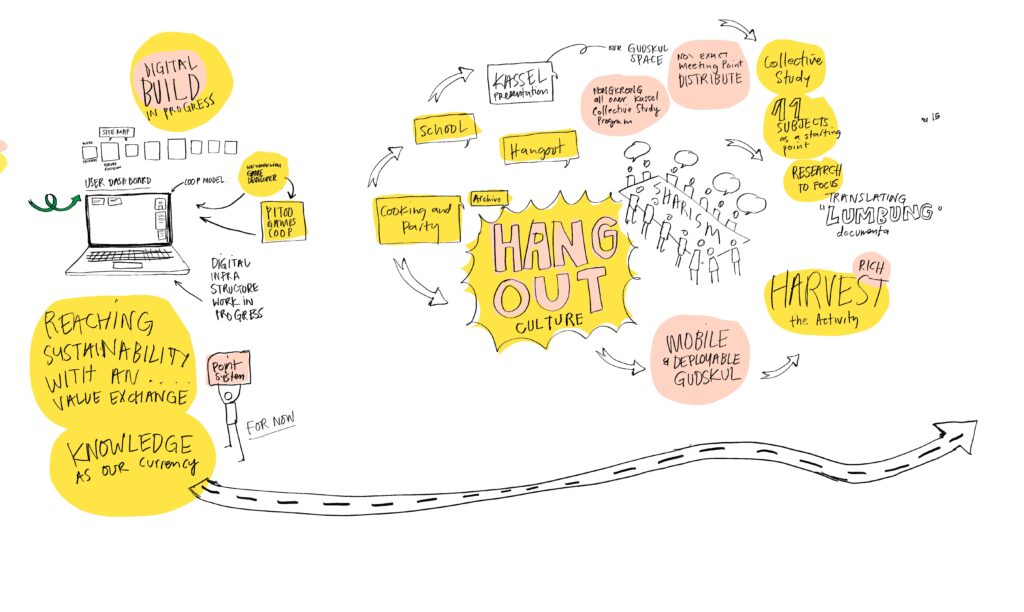 DIGITAL
BUILD
IN PROGRESS
SITE MAP
USER DASHBOARD
COOP MODEL.
WE WORK WITH
GAME
DEVELOPER
PITOO
GAMES
COOP
DIGITAL
INFRA
STRUCTURE
WORK IN
PROGRESS
REACHING
SUSTAINABILITY
WITH AN .....
VALUE EXCHANGE
Point
System
FOR NOW
KNOWLEDGE
AS OUR Currency
KASSEL
Presentation
OUR GUDSKUL
SPACE
SCHOOL
Hangout
Cooking and
Party
Archive
HANG
OUT
CULTURE
NONGKRONG
all over Kassel
Collective Study
Program
NO EXACT
Meeting Point
DISTRIBUTE
SHARISM
Collective
Study
11
SUBJECTS
as a starting
point
RESEARCH
TO FOCUS
TRANSLATING
"LUMBUNG"
documenta
RICH
HARVEST
the Activity
MOBILE
& DEPLOYABLE
GUDSKUL